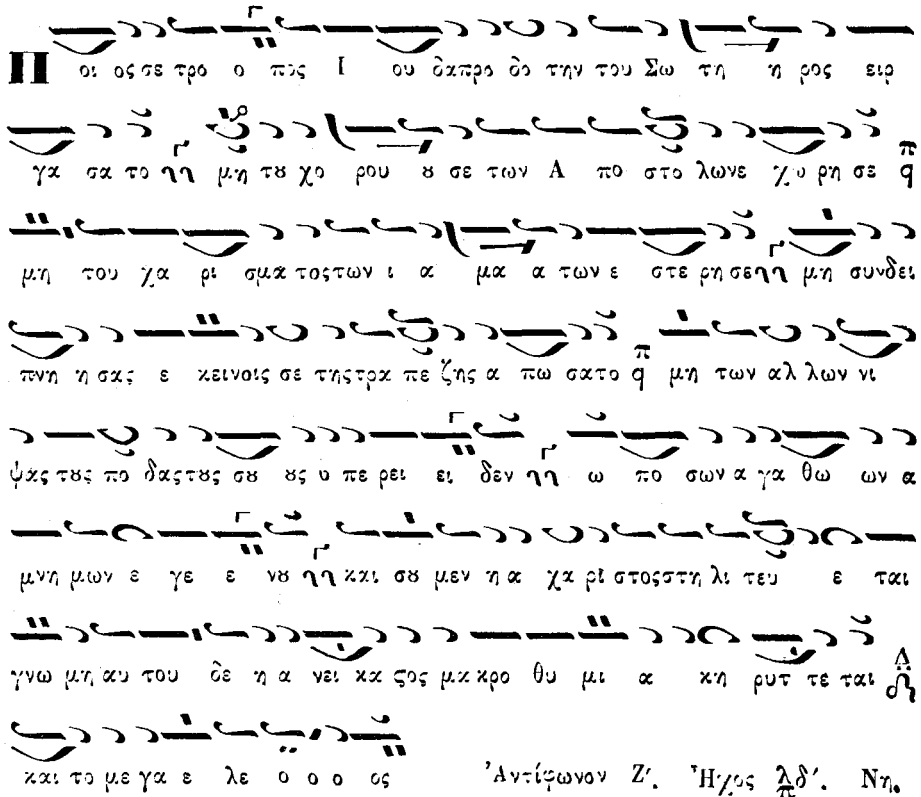 Π οι ος σε τρο ο πος Ι ου δα προ δο την του Σω τη η ρος ειρ
γα σα το μη τȣ χο ρου ȣ σε των Α πο στο λων ε χω ρη σε
μη του χα ρι σμα τος των ι α μα α των ε στε ρη σε μη συν δει
πνη η σας ε κεινοις σε της τρα πε ζης α πω σα το μη των αλ λων νι
ψας τȣς πο δας τȣς σȣ ȣς υ πε ρει ει δεν ω πο σων α γα θω ων α
μνη μων ε γε ε νȣ και σȣ μεν η α χα ρι στος στη λι τευ ε ται
γνω μη αυ του δε η α νει κα ςος μα κρο θυ μι α κη ρυτ τε ται
και το με γα ε λε ο ο ο ος Ἀντίφωνον Ζʹ. Ἦχος λπ δʹ. Νη.